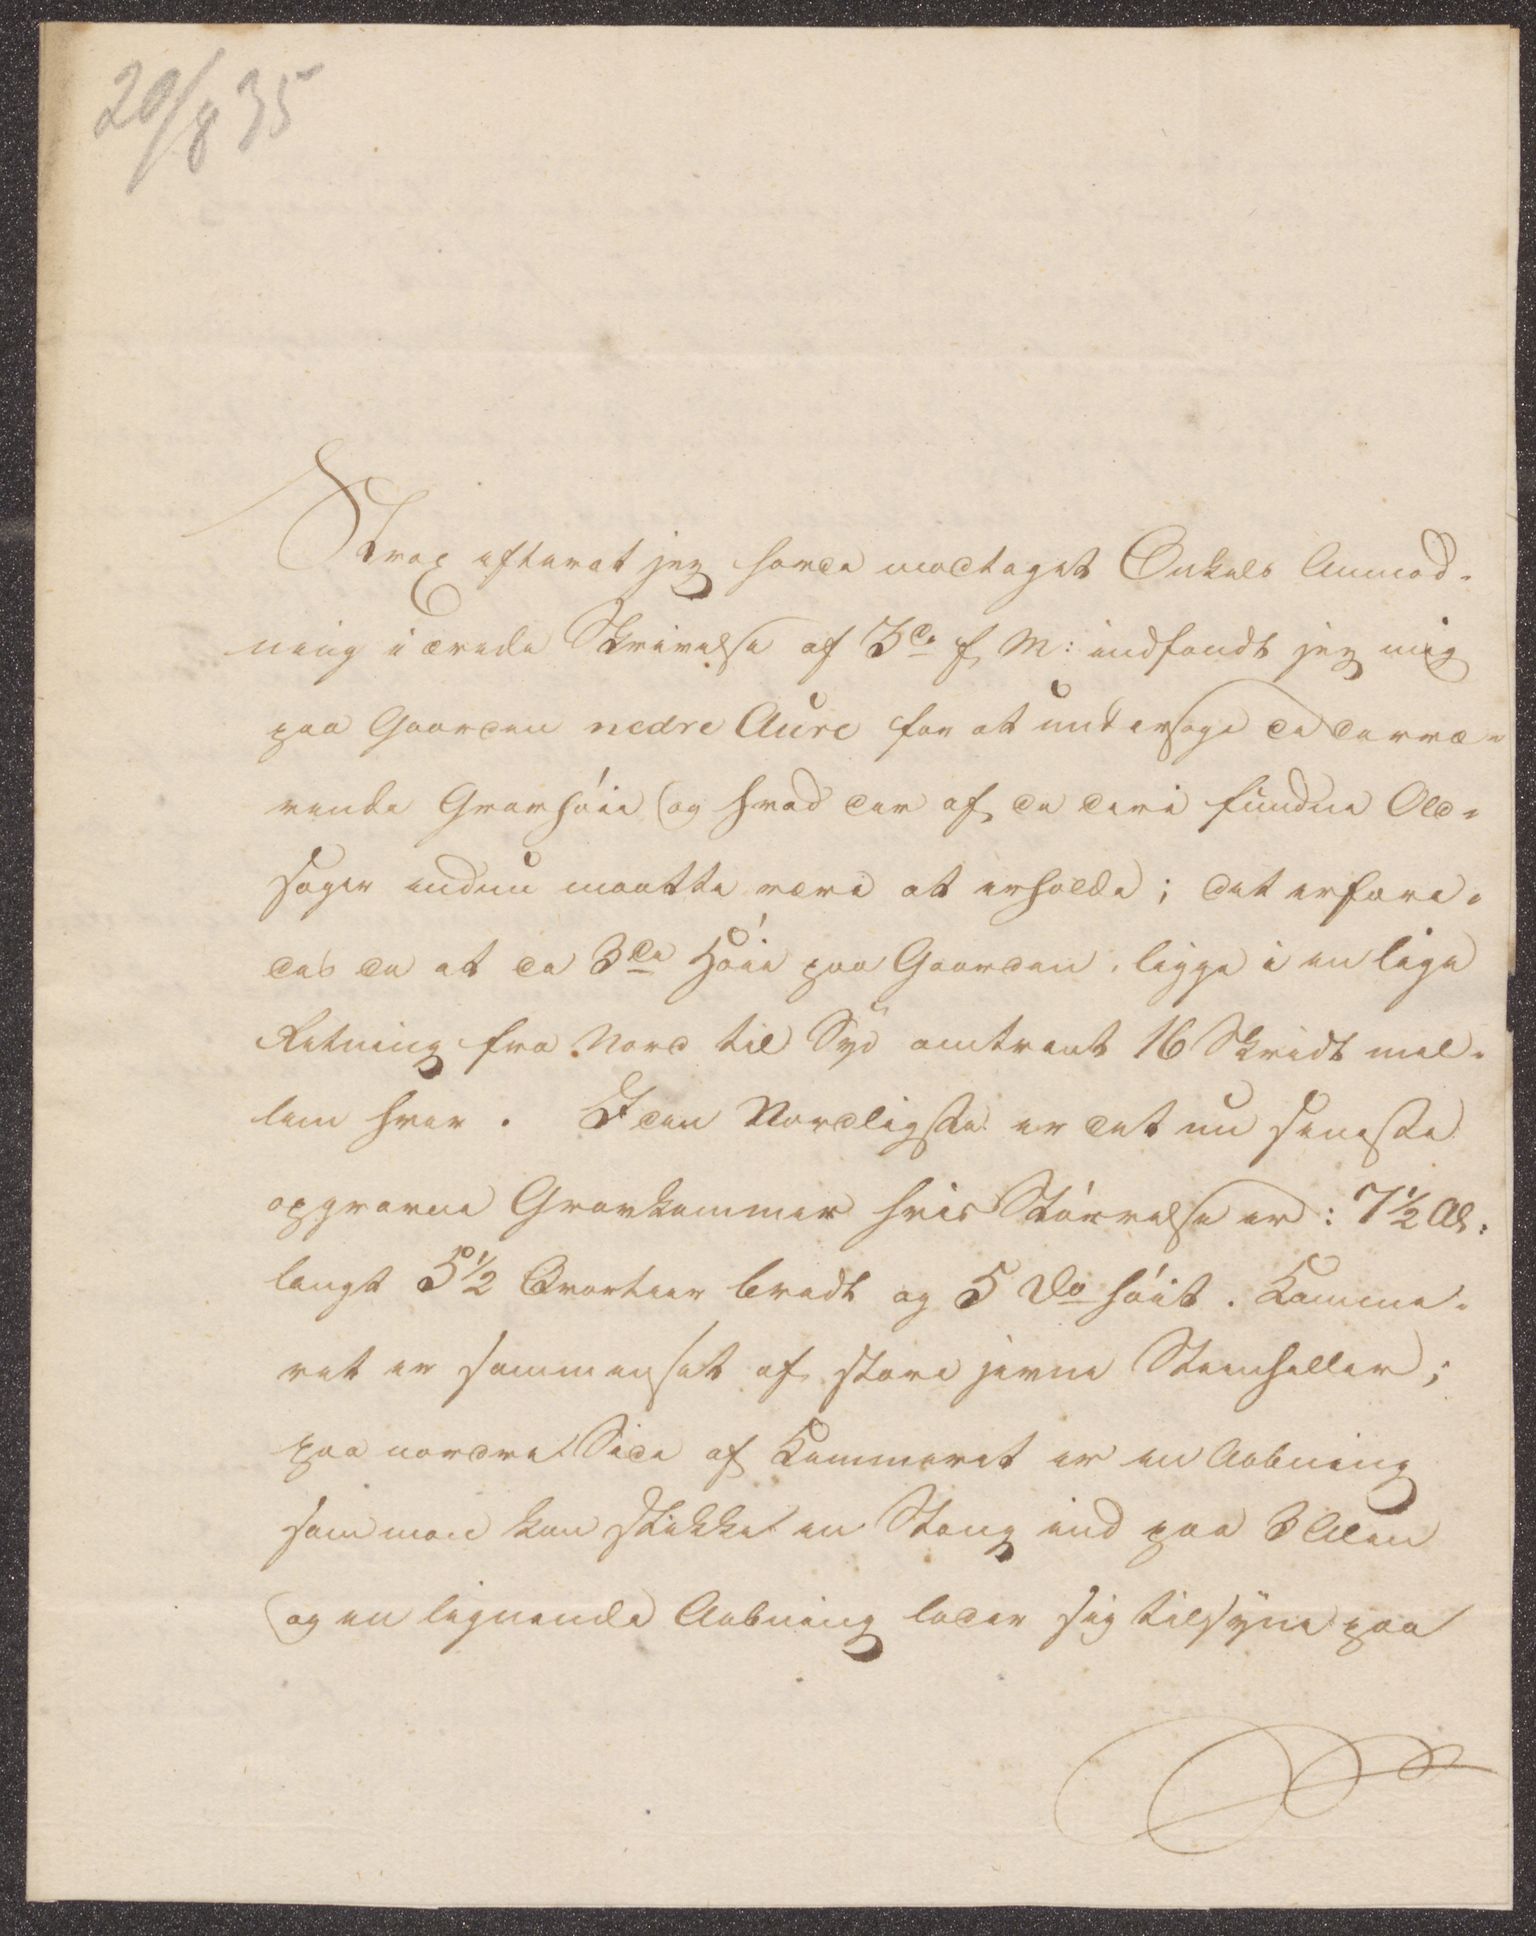 20/8 35
Strax efterat jeg havde modtaget Onkels Anmod-
ning i ærede Skrivelse af 3de f. M: indfandt jeg mig
paa Gaarden nedre Aure for at undersøge de dervæ-
rende Gravhøie og hvad der af de deri fundne Old-
sager endnu maatte være at erholde; det erfare-
des da at de 3de Høie paa Gaarden, ligge i en lige
Retning fra Nord til Syd omtrent 16 Skridt mel-
lem hver. I den Nordligste er det nu seneste
opgravne Gravkammer hvis Størrelse er: 7½ Al.
langt 5½ Qvarteer bredt og 5 Do høit. Kamme-
ret er sammensat af store jevne Steenheller;
paa nordre Side af Kammeret er en Aabning
som man kan stikke en Stang ind paa 3 Alen
og en lignende Aabning lader sig tilsyne paa